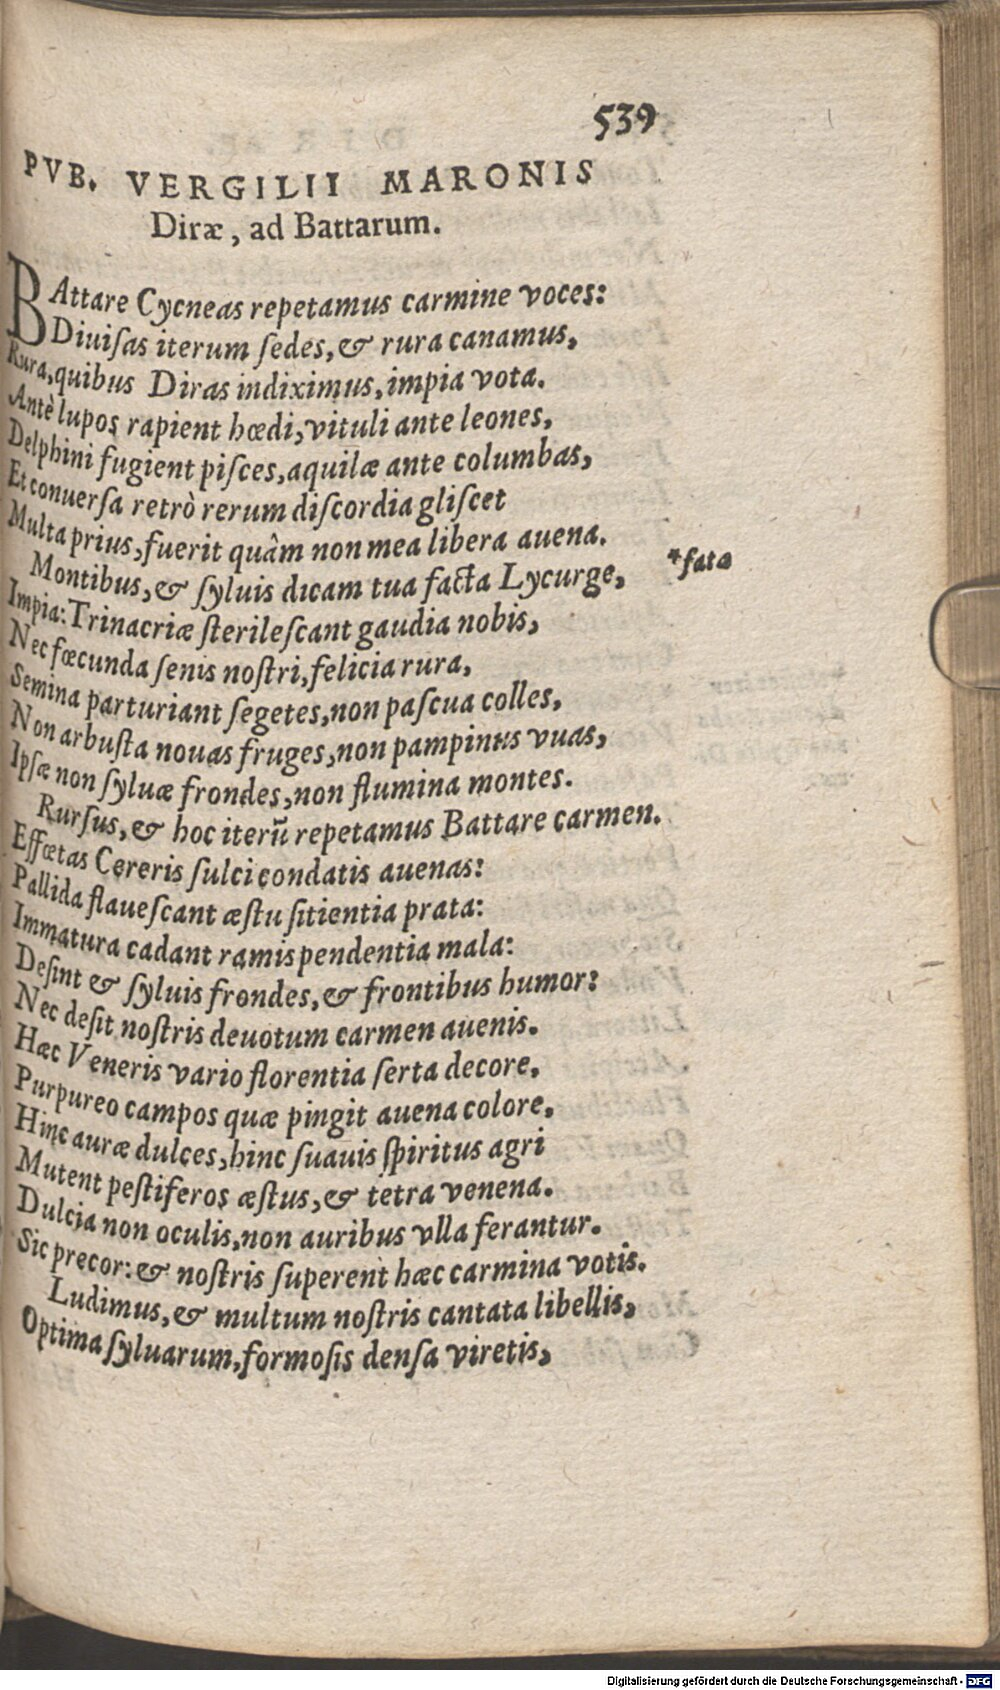 539
PVB. VERGILII MARONIS
Diræ, ad Battarum.
BAttare Cycneas repetamus carmine voces:
Diuiſas iterum ſedes, & rura canamus,
Rura, quibus Diras indiximus, impia vota.
Antè lupos rapient hœdi, vituli ante leones,
Delphini fugient piſces, aquilæ ante columbas,
Et conuerſa retrò rerum diſcordia gliſcet
Multa prius, fuerit quâm non mea libera auena.
Montibus, & ſyluis dicam tua facta Lycurge,
*fata
Impia: Trinacriæ ſterileſcant gaudia nobis,
Nec fœcunda ſenis noſtri, felicia rura,
Semina parturiant ſegetes, non paſcua colles,
Non arbuſta nouas fruges, non pampinus vuas,
Ipſæ non ſyluæ frondes, non flumina montes.
Rurſus, & hoc iterũ repetamus Battare carmen.
Effœtas Cereris ſulci condatis auenas:
Pallida flaueſcant æſtu ſitientia prata:
Immatura cadant ramis pendentia mala:
Deſint & ſyluis frondes, & frontibus humor:
Nec deſit noſtris deuotum carmen auenis.
Hæc Veneris vario florentia ſerta decore,
Purpureo campos quæ pingit auena colore,
Hinc auræ dulces, hinc ſuauis ſpiritus agri
Mutent peſtiferos æſtus, & tetra venena.
Dulcia non oculis, non auribus vlla ferantur.
Sic precor: & noſtris ſuperent hæc carmina votis.
Ludimus, & multum noſtris cantata libellis,
Optima ſyluarum, formoſis denſa viretis,
Digitalisierung gefördert durch die Deutsche Forschungsgemeinschaft - DFG